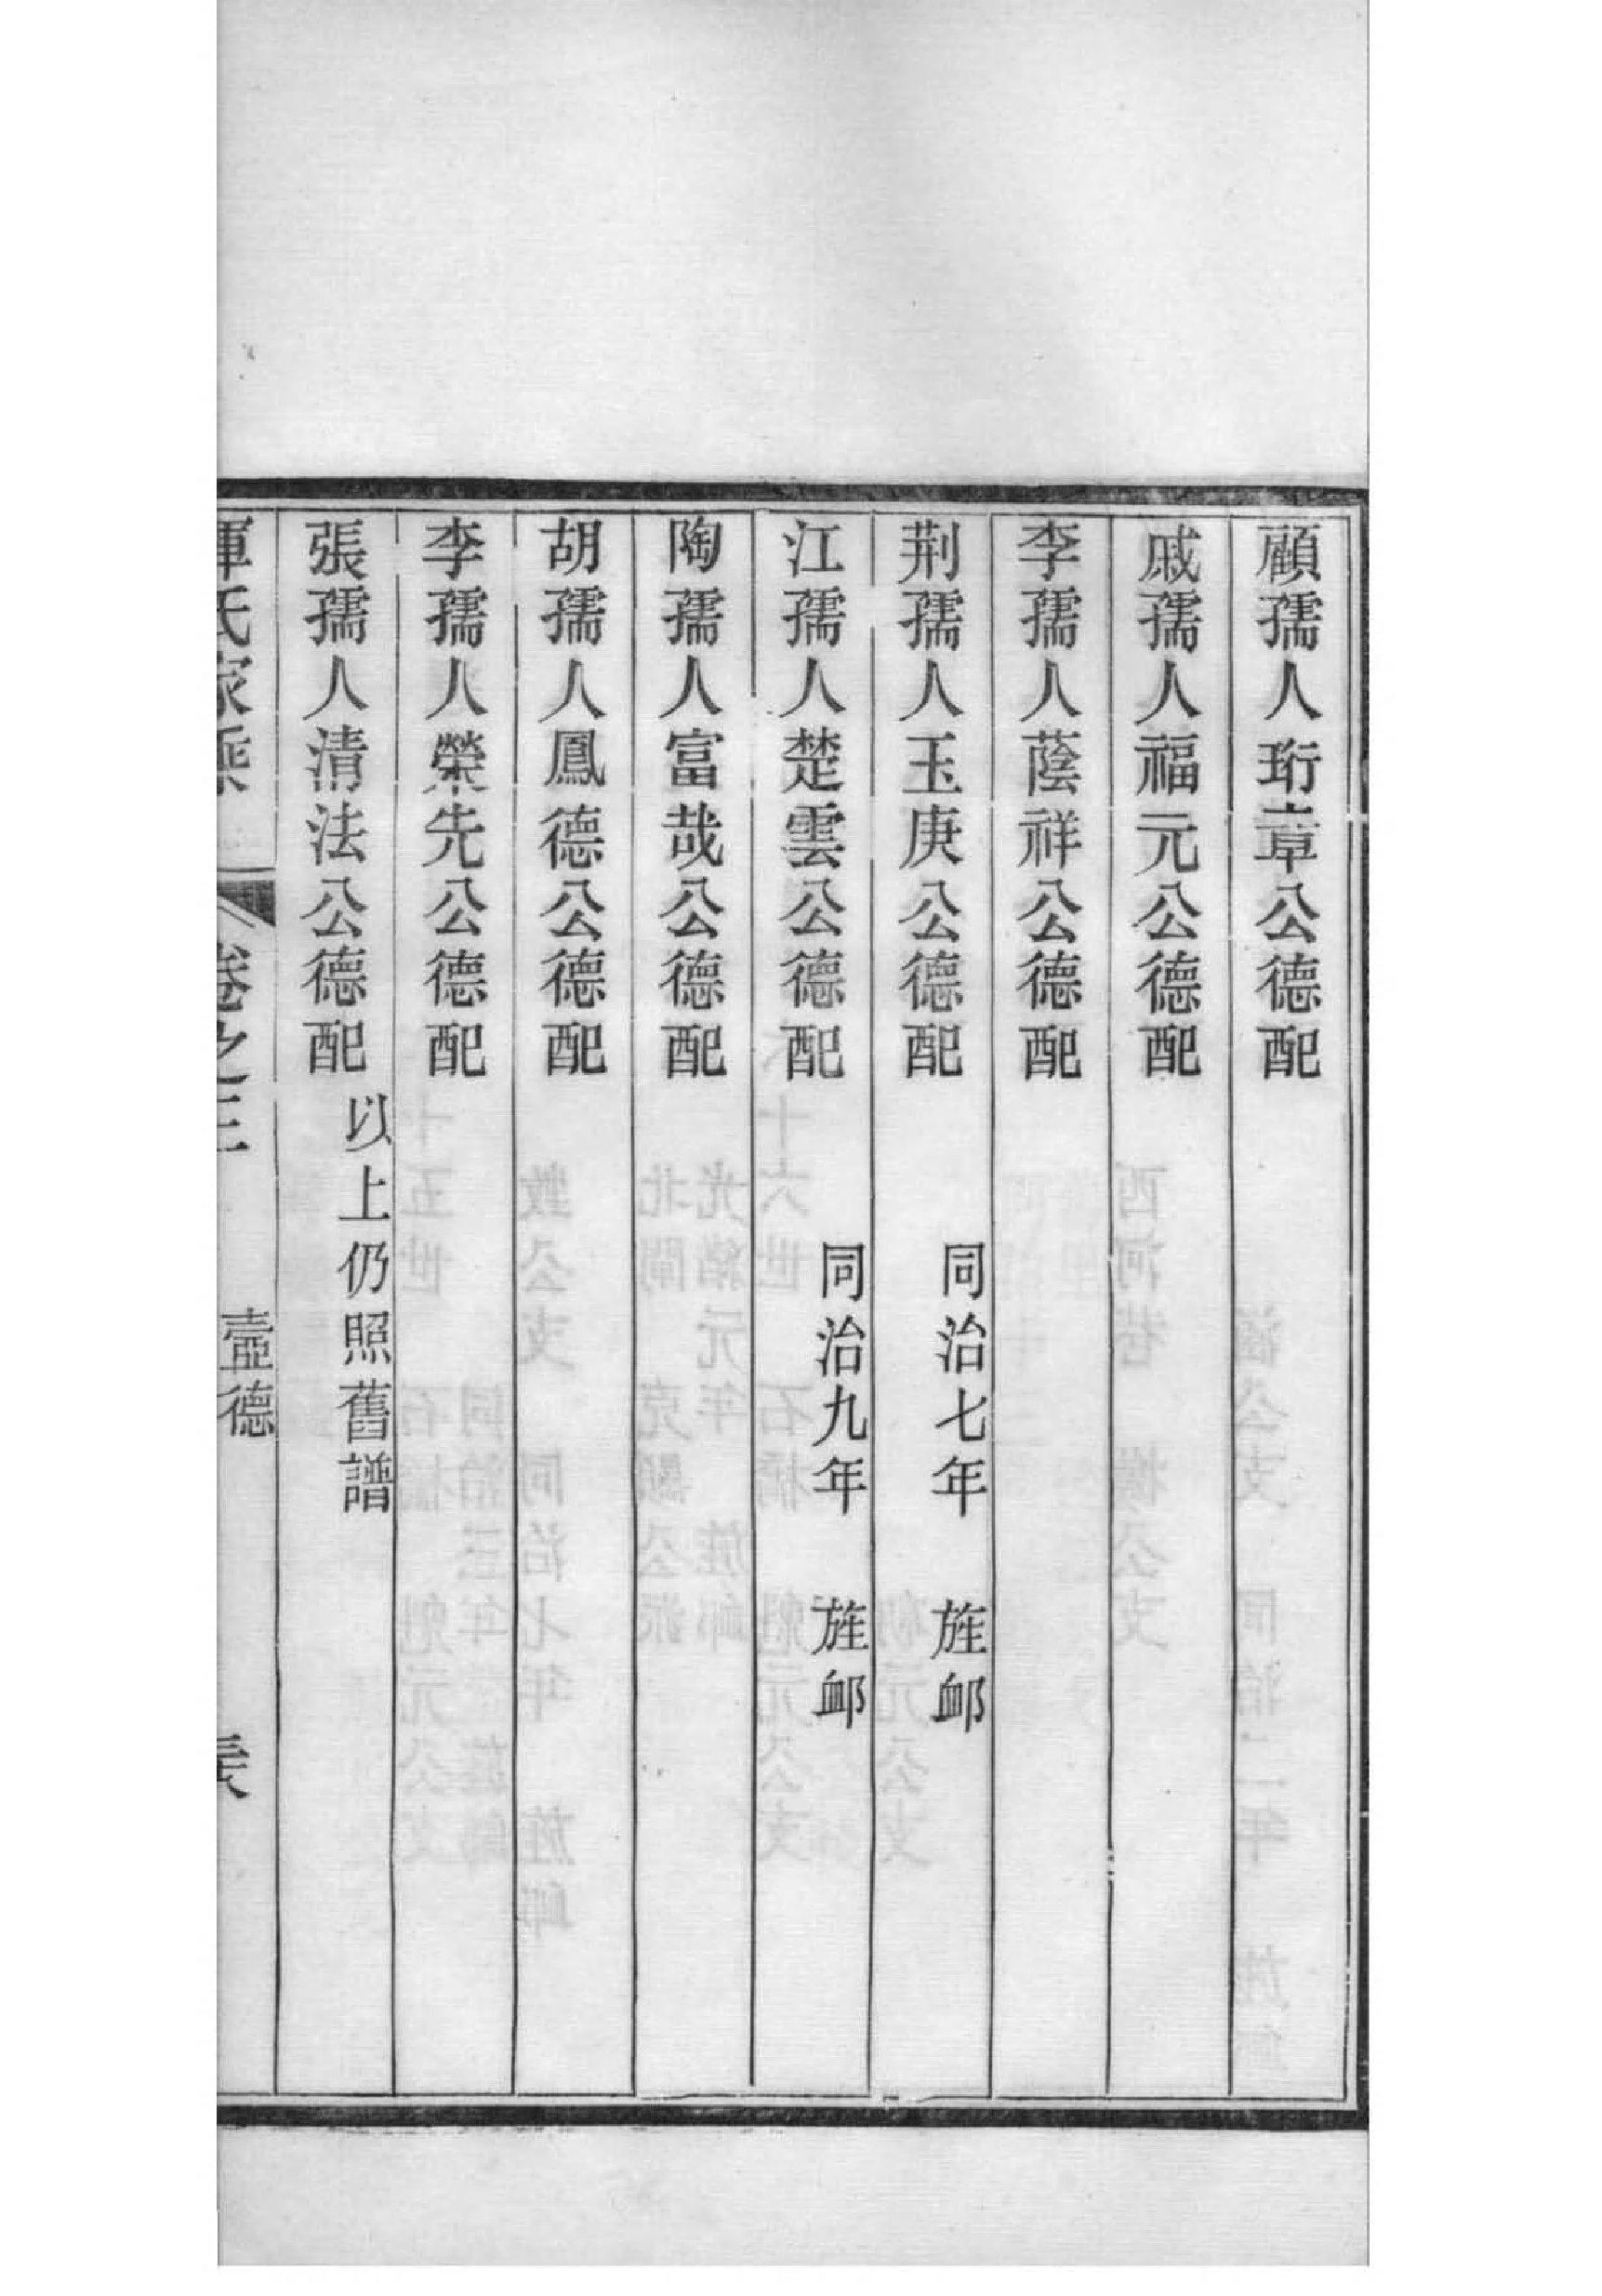 顧孺人珩章公德配
戚孺人福元公德配
李孺人蔭祥公德配
荆孺人玉庚公德配 同治七年 旌卹
江孺人楚雲公德配 同治九年 旌卹
陶孺人富哉公德配
胡孺人鳳德公德配
李孺人榮先公德配
張孺人清法公德配 以上仍照舊譜
惲氏家乘 卷之三 壼德 表